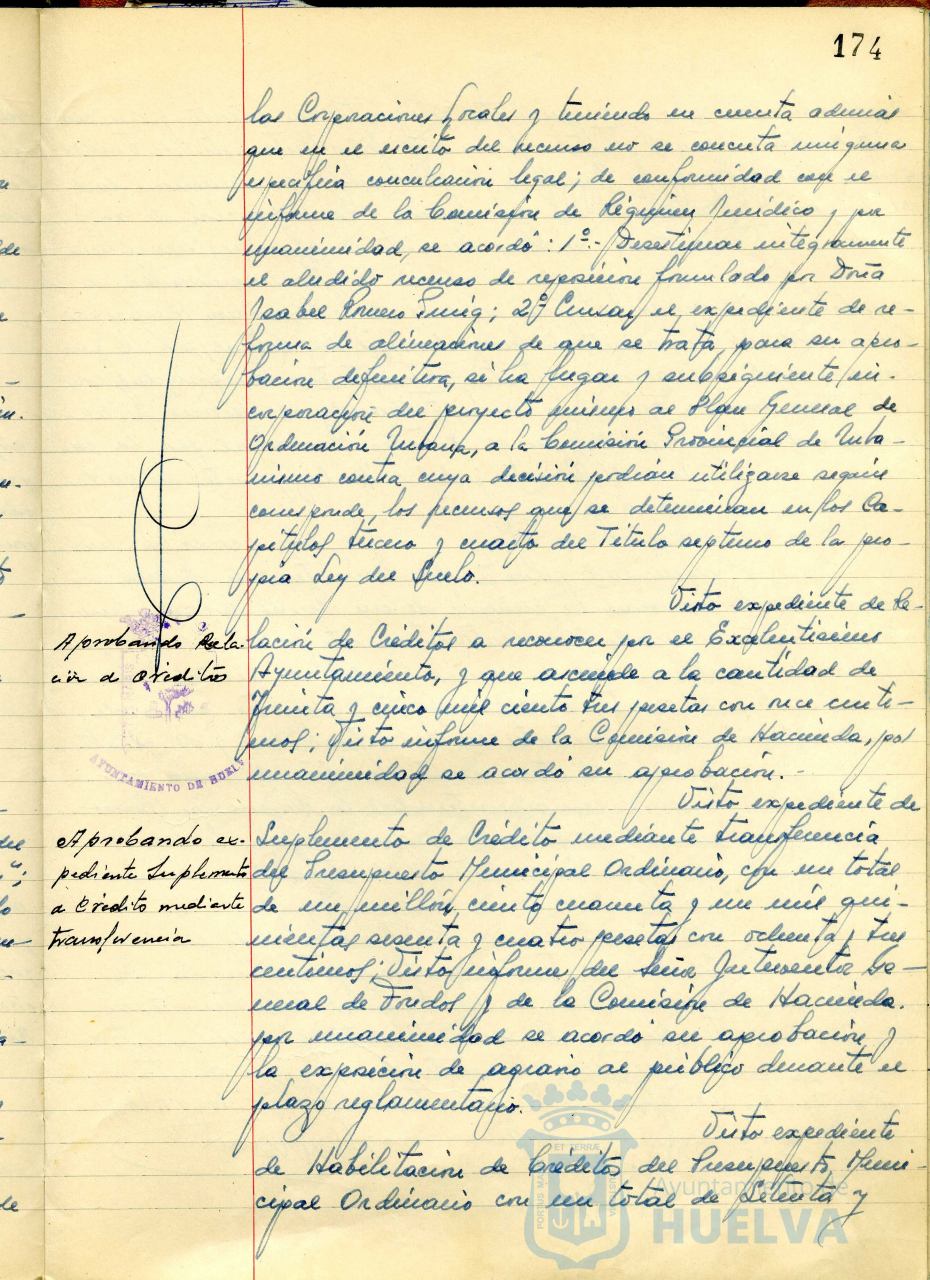 174
las Corporaciones Locales y teniendo en cuenta además
que en el escrito del recurso no se concreta ninguna
específica conculcación legal; de conformidad con el
informe de la Comisión de Régimen Jurídico y por
unanimidad, se acordó: 1º.- Desestimar integramente
el aludido recurso de reposición formulado por Doña
Isabel Romero Puig; 2º Cursar el expediente de re-
forma de alineaciones de que se trata, para su apro-
bación definitiva, si ha lugar y subsiguiente in-
corporación del proyecto mismo al Plan General de
Ordenación Urbana, a la Comisión Provincial de Urba-
nismo contra cuya decisión podrán utilizarse según
corresponde, los recursos que se determinan en los Ca-
pítulos tercero y cuarto del Título septimo de la pro-
pia Ley del Suelo.
Visto expediente de Re-
Aprobando Rela-
ción de Créditos
lación de Créditos a reconocer por el Excelentísimo
Ayuntamiento, y que asciende a la cantidad de
Treinta y cinco mil ciento tres pesetas con once cénti-
mos; Visto informe de la Comisión de Hacienda, por
unanimidad se acordó su aprobación.-
AYUNTAMIENTO DE HUELV
Visto expediente de
Aprobando ex-
pediente Suplemento
de Crédito mediante
transferencia
Suplemento de Crédito mediante transferencia
del Presupuesto Municipal Ordinario, con un total
de un millón, ciento cuarenta y un mil qui-
nientas sesenta y cuatro pesetas con ochenta y tres
centimos; Visto informe del Señor Interventor Ge-
neral de Fondos y de la Comisión de Hacienda.
por unanimidad se acordó su aprobación y
la exposición de agravio al público durante el
plazo reglamentario.
Visto expediente
de Habilitación de Créditos del Presupuesto Muni-
cipal Ordinario con un total de Setenta y
Ayuntamiento de
HUELVA